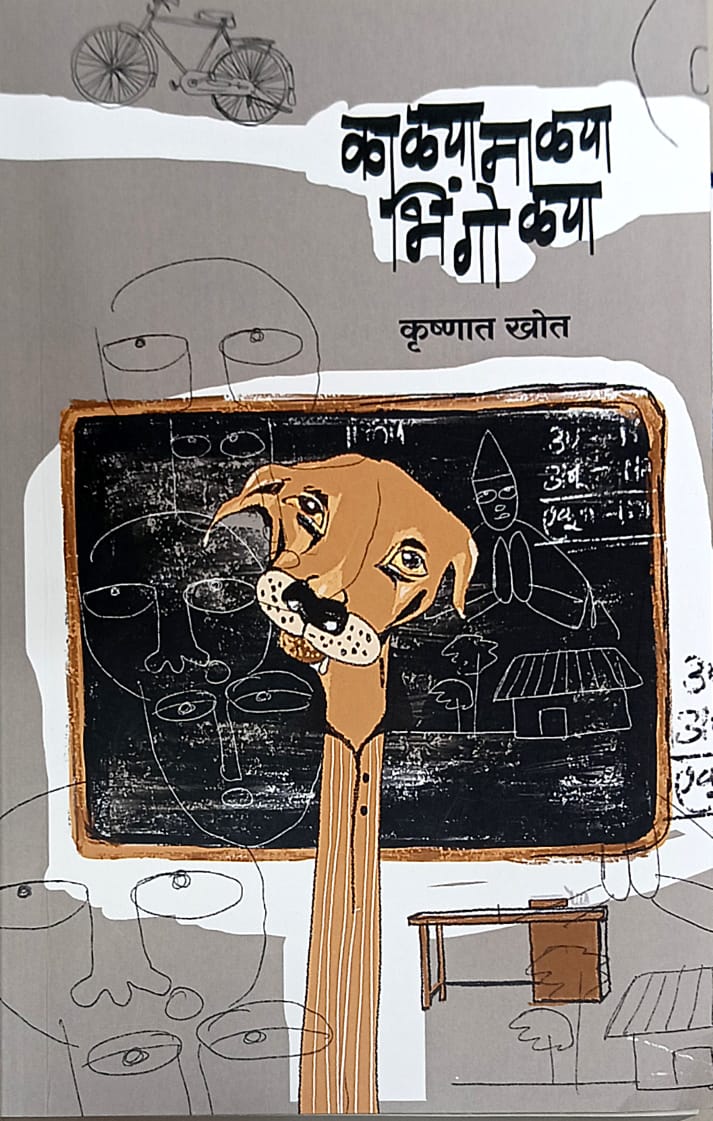 काळ्यामाळ्या
भिंगोळ्या
कृष्णात खोत